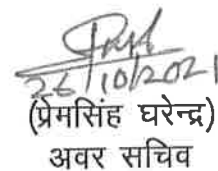 26/10/2021
(प्रेमसिंह घरेन्द्र)
अवर सचिव